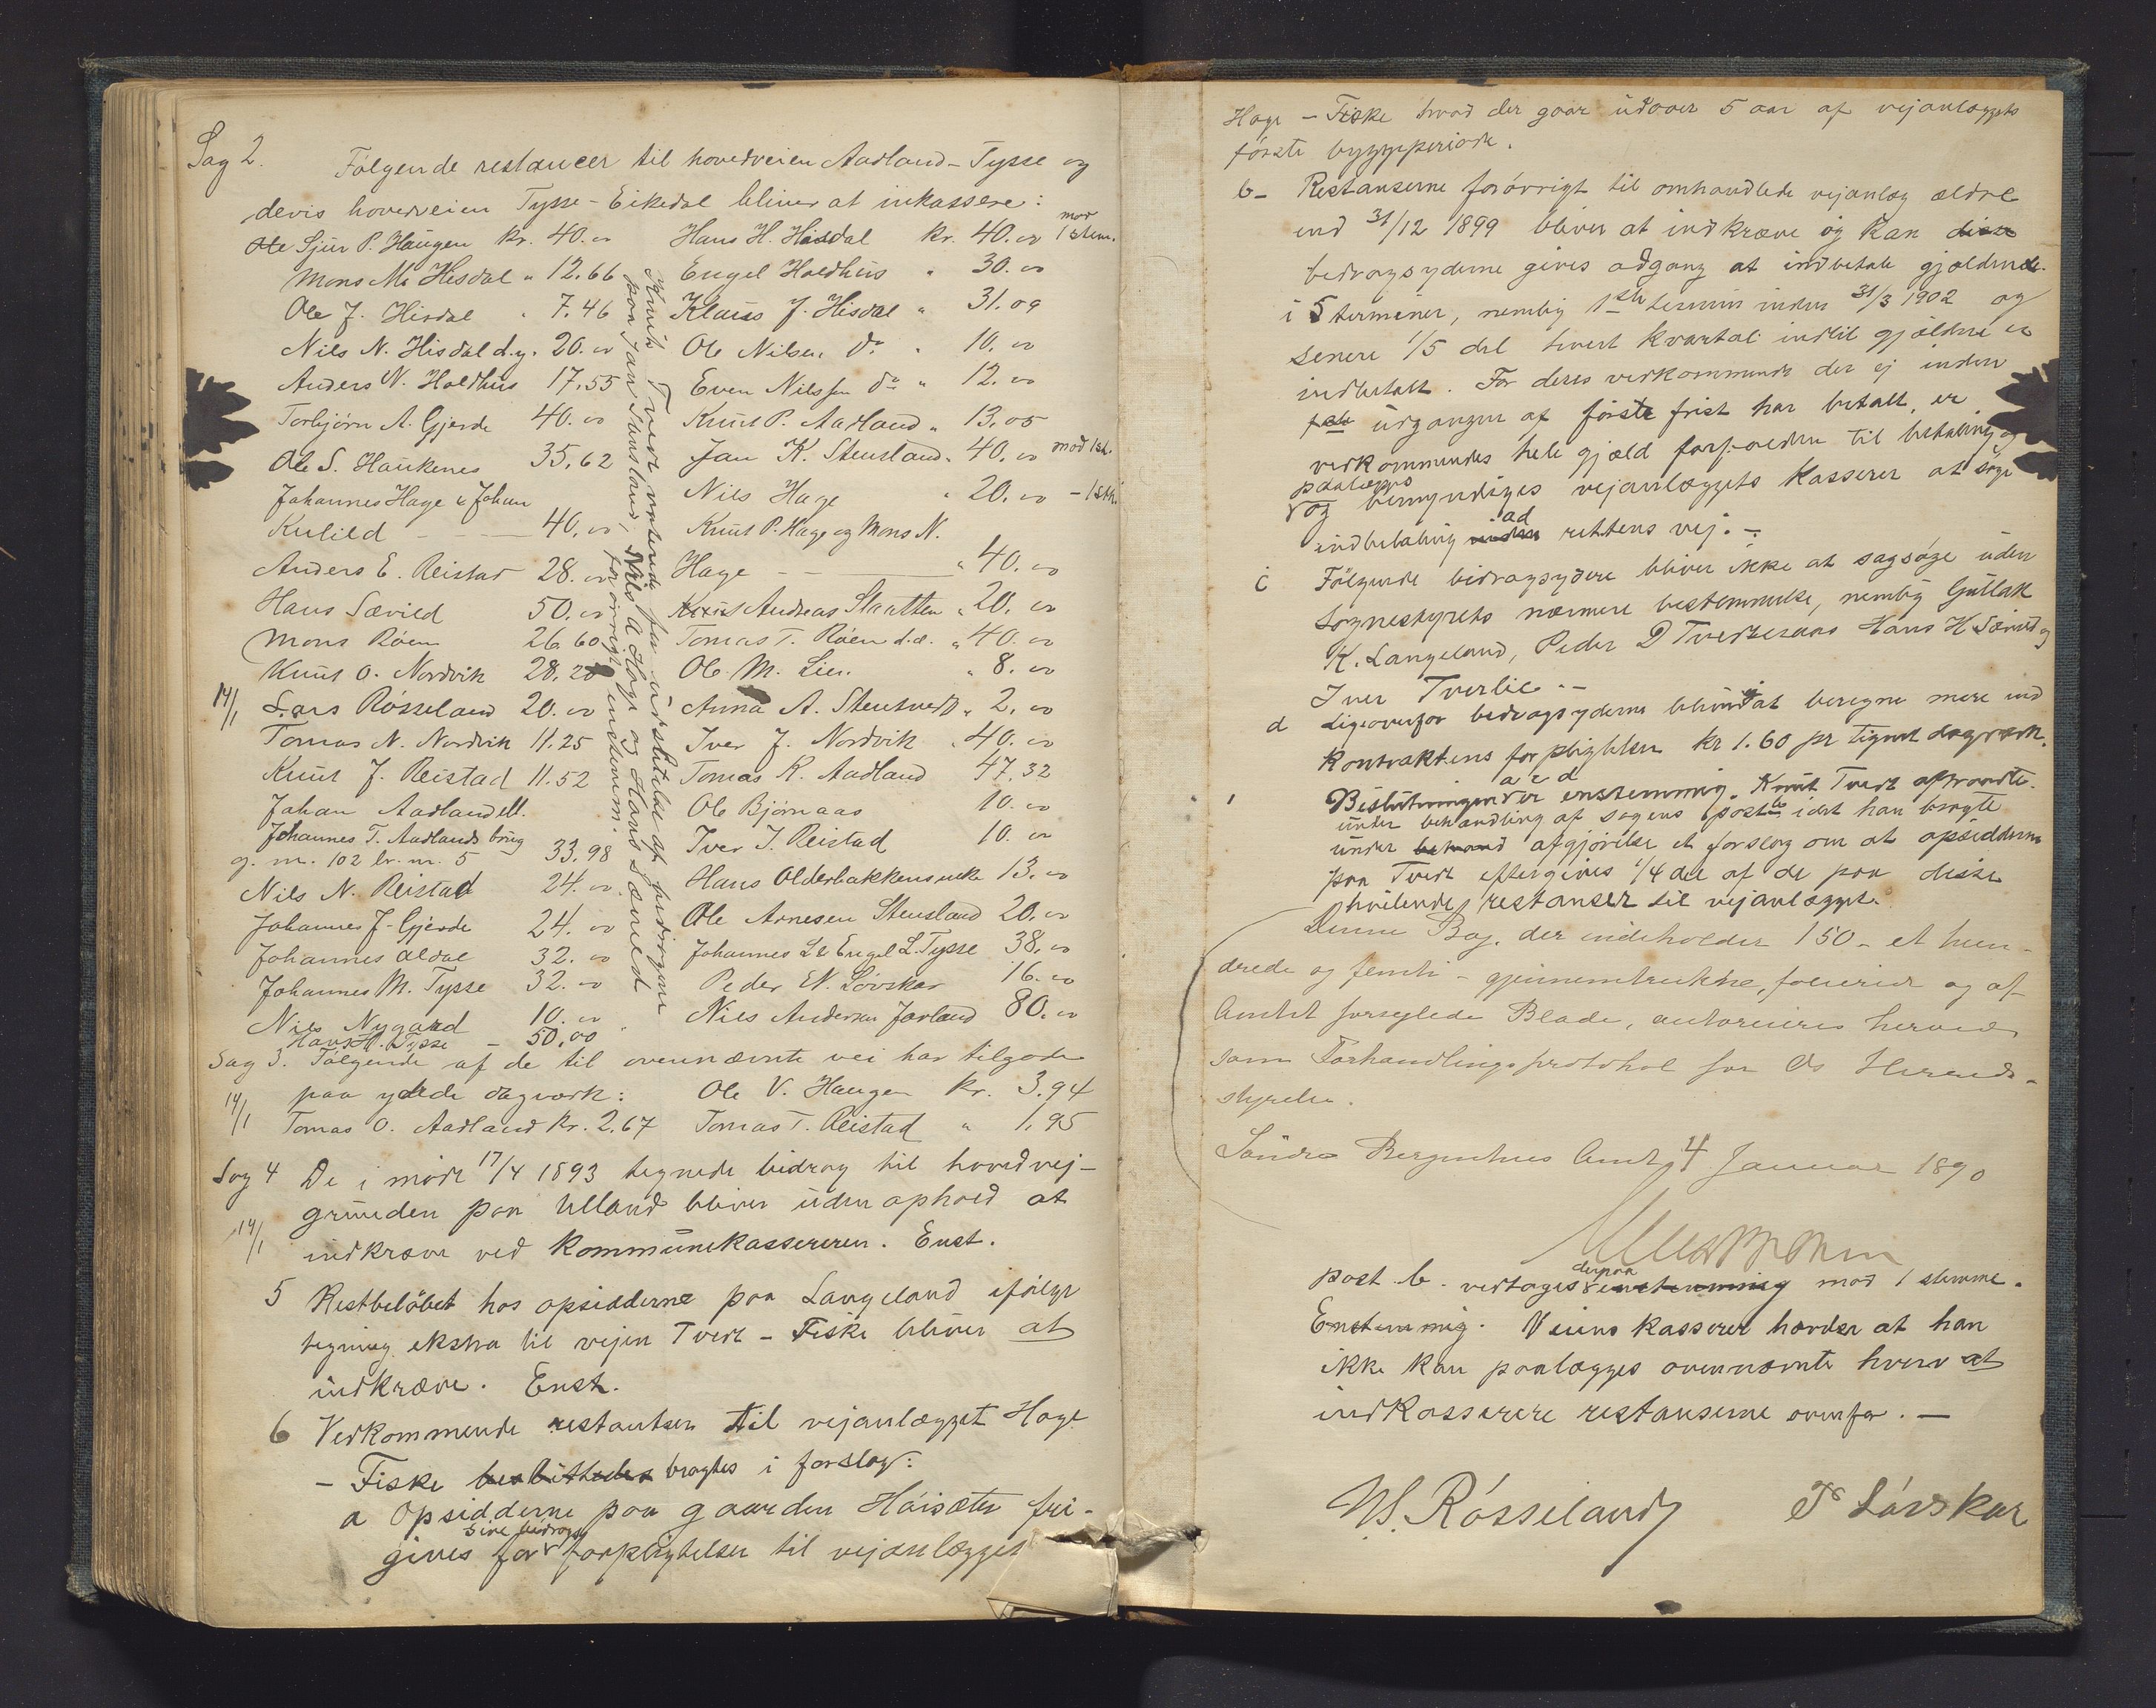 Sag 2. Følgende restancer til hovedveien Aadland - Tysse og
devis hovedveien Tysse - Eikedal bliver at inkassere:
Ole Sjur P. Haugen kr. 40.00 Hans H. Hisdal kr. 40.00 mod 1 stem.
Mons M. Hisdal " 12.66 Engel Holdhus " 30.00
Ole J. Hisdal " 7.46 Klaus J. Hisdal " 31.09
Nils N. Hisdal d.y. 20.00 Ole Nilsen do " 10.00
Anders N. Holdhus 17.55 Even Nilssen do " 12.00
Torbjörn A. Gjerde 40.00 Knut P. Aadland " 13.05
Ole S. Haukenes 35.62 Jan K. Stensland " 40.00 mod 1 st.
Johannes Hage & Johan Nils Hage " 20.00 - 1 st.
Kulild - - - 40.00 Knut P. Hage og Mons N.
Anders E. Reistad 28.00 Hage - - " 40.00
Hans Sævild 50.00 Knut Andreas Slaatten " 20.00
Mons Röen 26.60 Tomas T. Röen d.æ. " 40.00
Knut O. Nordvik 28.20 Ole M. Lien " 8.00
14/1 Lars Rösseland 20.00 Anna A. Stensvedt " 2.00
Tomas N. Nordvik 11.25 Iver J. Nordvik " 40.00
Knut J. Reistad 11.52 Tomas K. Aadland 47.32
Johan Aadland ell. Ole Bjørnaas 10.00
Johannes T. Aadlands brug Iver I. Reistad 10.00
g. nr. 102 br. nr. 5 33.98
Nils N. Reistad 24.00 Hans Olderbakkens enke 13.00
Johannes J. Gjerde 24.00 Ole Arnesen Stensland 20.00
Johannes Aldal 32.00 Johannes L & Engel L. Tysse 38.00
Johannes M. Tysse 32.00 Peder N. Lövskar 16.00
Nils Nygard 10.00 Nils Andersen Jarland 80.00
Hans H. Tysse - 50.00
Knut Tvedt voterede for udsættelse af bidragene
paa Jan Stensland, Nils A. Hage og Hans Sævild
forövrigt enstemm.
Sag 3. Følgende af de til ovennævnte vei har tilgode
14/1 paa ydede dagværk: Ole V. Haugen kr. 3.94
Tomas O. Aadland kr. 2.67 Tomas T. Reistad " 1.95
Sag 4 De i møde 17/4 1893 tegnede bidrag til hovedvej-
grunden paa Ulland bliver uden ophold at
14/1 indkræve ved kommunekassereren. Enst.
5 Restbelöbet hos opsidderne paa Langeland ifölge
tegning ekstra til vejen Tvedt - Fiske bliver at
indkræve. Enst.
6 Vedkommende restantsen til vejanlægget Hage
- Fiske besluttedes bragtes i forslag:
a Opsidderne paa gaarden Höisæter fri-
gives for sine bidrags forpligtelser til vejanlægget
Hage - Fiske hvad der gaar udover 5 aar af vejanlæggets
förste byggeperiode.
b - Restanserne forövrigt til omhandlede vejanlæg ældre
end 31/12 1899 bliver at indkræve og kan disse
bidragsyderne gives adgang at indbetale gjælden
i 5 terminer, nemlig 1ste termin inden 31/3 1902 og
senere 1/5 del hvert kvartal indtil gjælden er
indbetalt. For deres vedkommende der ej inden
udgangen af förste frist har betalt, er
vedkommendes hele gjæld forfalden til betaling og
paalægges og bemyndiges vejanlæggets kasserer at söge
indbetaling inden ad rettens vej. -
c Fölgende bidragsydere bliver ikke at sagsöge uden
sognestyrets nærmere bestemmelse, nemlig Gullak
K. Langeland, Peder D Tveiteraas Hans H Sævild og
Iver Tverlie. -
d Ligeoverfor bidragsyderne bliver ej at beregne mere end
kontraktens forpligtelse kr 1.60 pr tegnet dagværk.
Beslutningen a c d er enstemmig. Knut Tvedt aftraadte
under behandling af sagens post idet han bragte
under behand afgjörelse et forslag om at opsidderne
paa Tvedt eftergives 1/4 del af de paa disse
hvilende restanser til vejanlægget.
Denne Bog, der indeholder 150 - et hun-
drede og femti - gjennemtrukne, folierede og af
Amtet forseglede Blade, autoriseres herved
som Forhandlingsprotokol for Os Herreds-
styrelse.
Söndre Bergenhus Amt, 4 Januar 1890
post b. vedtoges derpaa enstemmig mod 1 stemme.
Enstemmig. Veiens kasserer hævder at han
ikke kan paalægges ovennævnte hverv at
indkasserere restanserne ovenfor. -
M. Rösseland P Lövskar